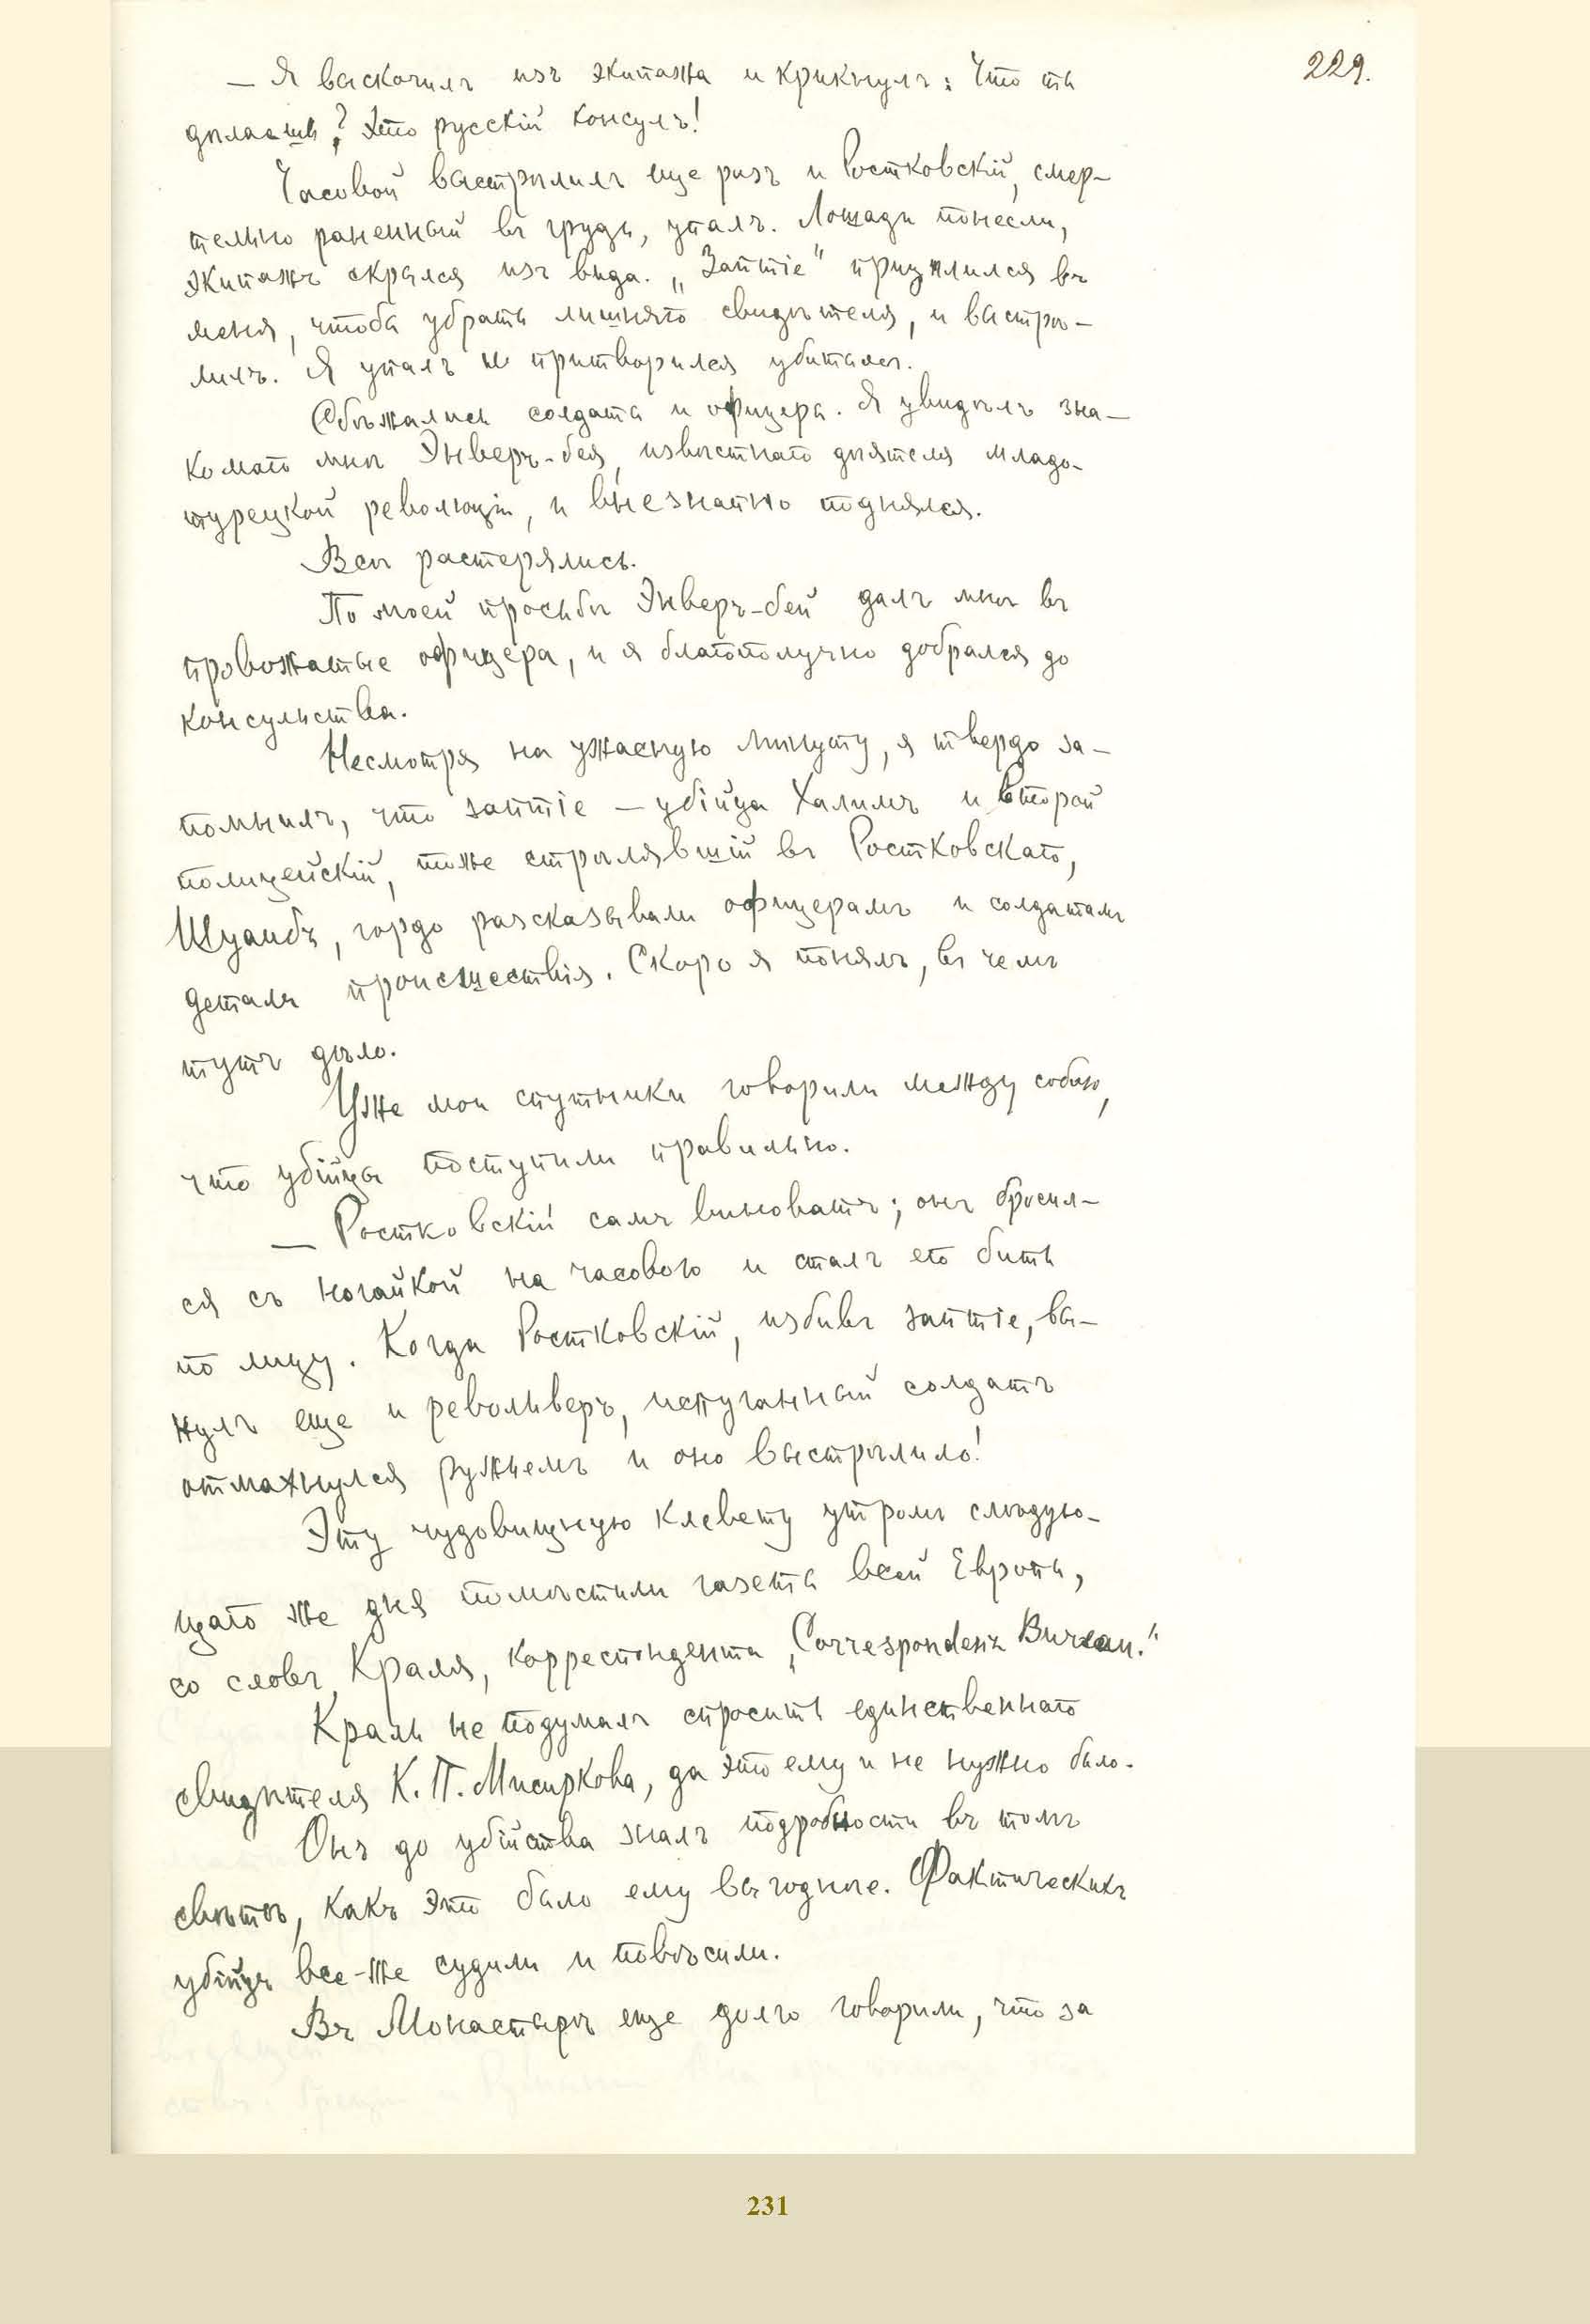 229.
— Я выскочилъ изъ экипажа и крикнулъ: Что ты
дѣлаешь? Это русскій консулъ!
Часовой выстрѣлилъ еще разъ и Ростковскій, смер-
тельно раненный въ грудь, упалъ. Лошади понесли,
экипажъ скрылся изъ вида. „Заптіе" прицѣлился въ
меня, чтобы убрать лишняго свидѣтеля, и выстрѣ-
лилъ. Я упалъ и притворился убитымъ.
Сбѣжались солдаты и офицеры. Я увидѣлъ зна-
комаго мнѣ Энверъ-бея, извѣстнаго дѣятеля младо-
турецкой революціи, и внезапно поднялся.
Всѣ растерялись.
По моей просьбѣ Энверъ-бей далъ мнѣ въ
провожатые офицера, и я благополучно добрался до
консульства.
Несмотря на ужасную минуту, я твердо за-
помнилъ, что заптіе — убійца Халимъ и второй
полицейскій, тоже стрѣлявшій въ Ростковскаго,
Шуаибъ, гордо разсказывали офицерамъ и солдатамъ
детали происшествія. Скоро я понялъ, въ чемъ
тутъ дѣло.
Уже мои спутники говорили между собою,
что убійцы поступили правильно.
— Ростковскій самъ виноватъ; онъ бросил-
ся съ ногайкой на часового и сталъ его бить
по лицу. Когда Ростковскій, избивъ заптіе, вы-
нулъ еще и револьверъ, испуганный солдатъ
отмахнулся ружьемъ и оно выстрѣлило!
Эту чудовищную клевету утромъ слѣдую-
щаго же дня помѣстили газеты всей Европы,
со словъ Краля, корреспондента „Correspondenz Bureau."
Краль не подумалъ спросить единственнаго
свидѣтеля К. П. Мисиркова, да это ему и не нужно было.
Онъ до убійства зналъ подробности въ томъ
свѣтѣ, какъ это было ему выгоднѣе. Фактическихъ
убійцъ все-же судили и повѣсили.
Въ Монастырѣ еще долго говорили, что за
231